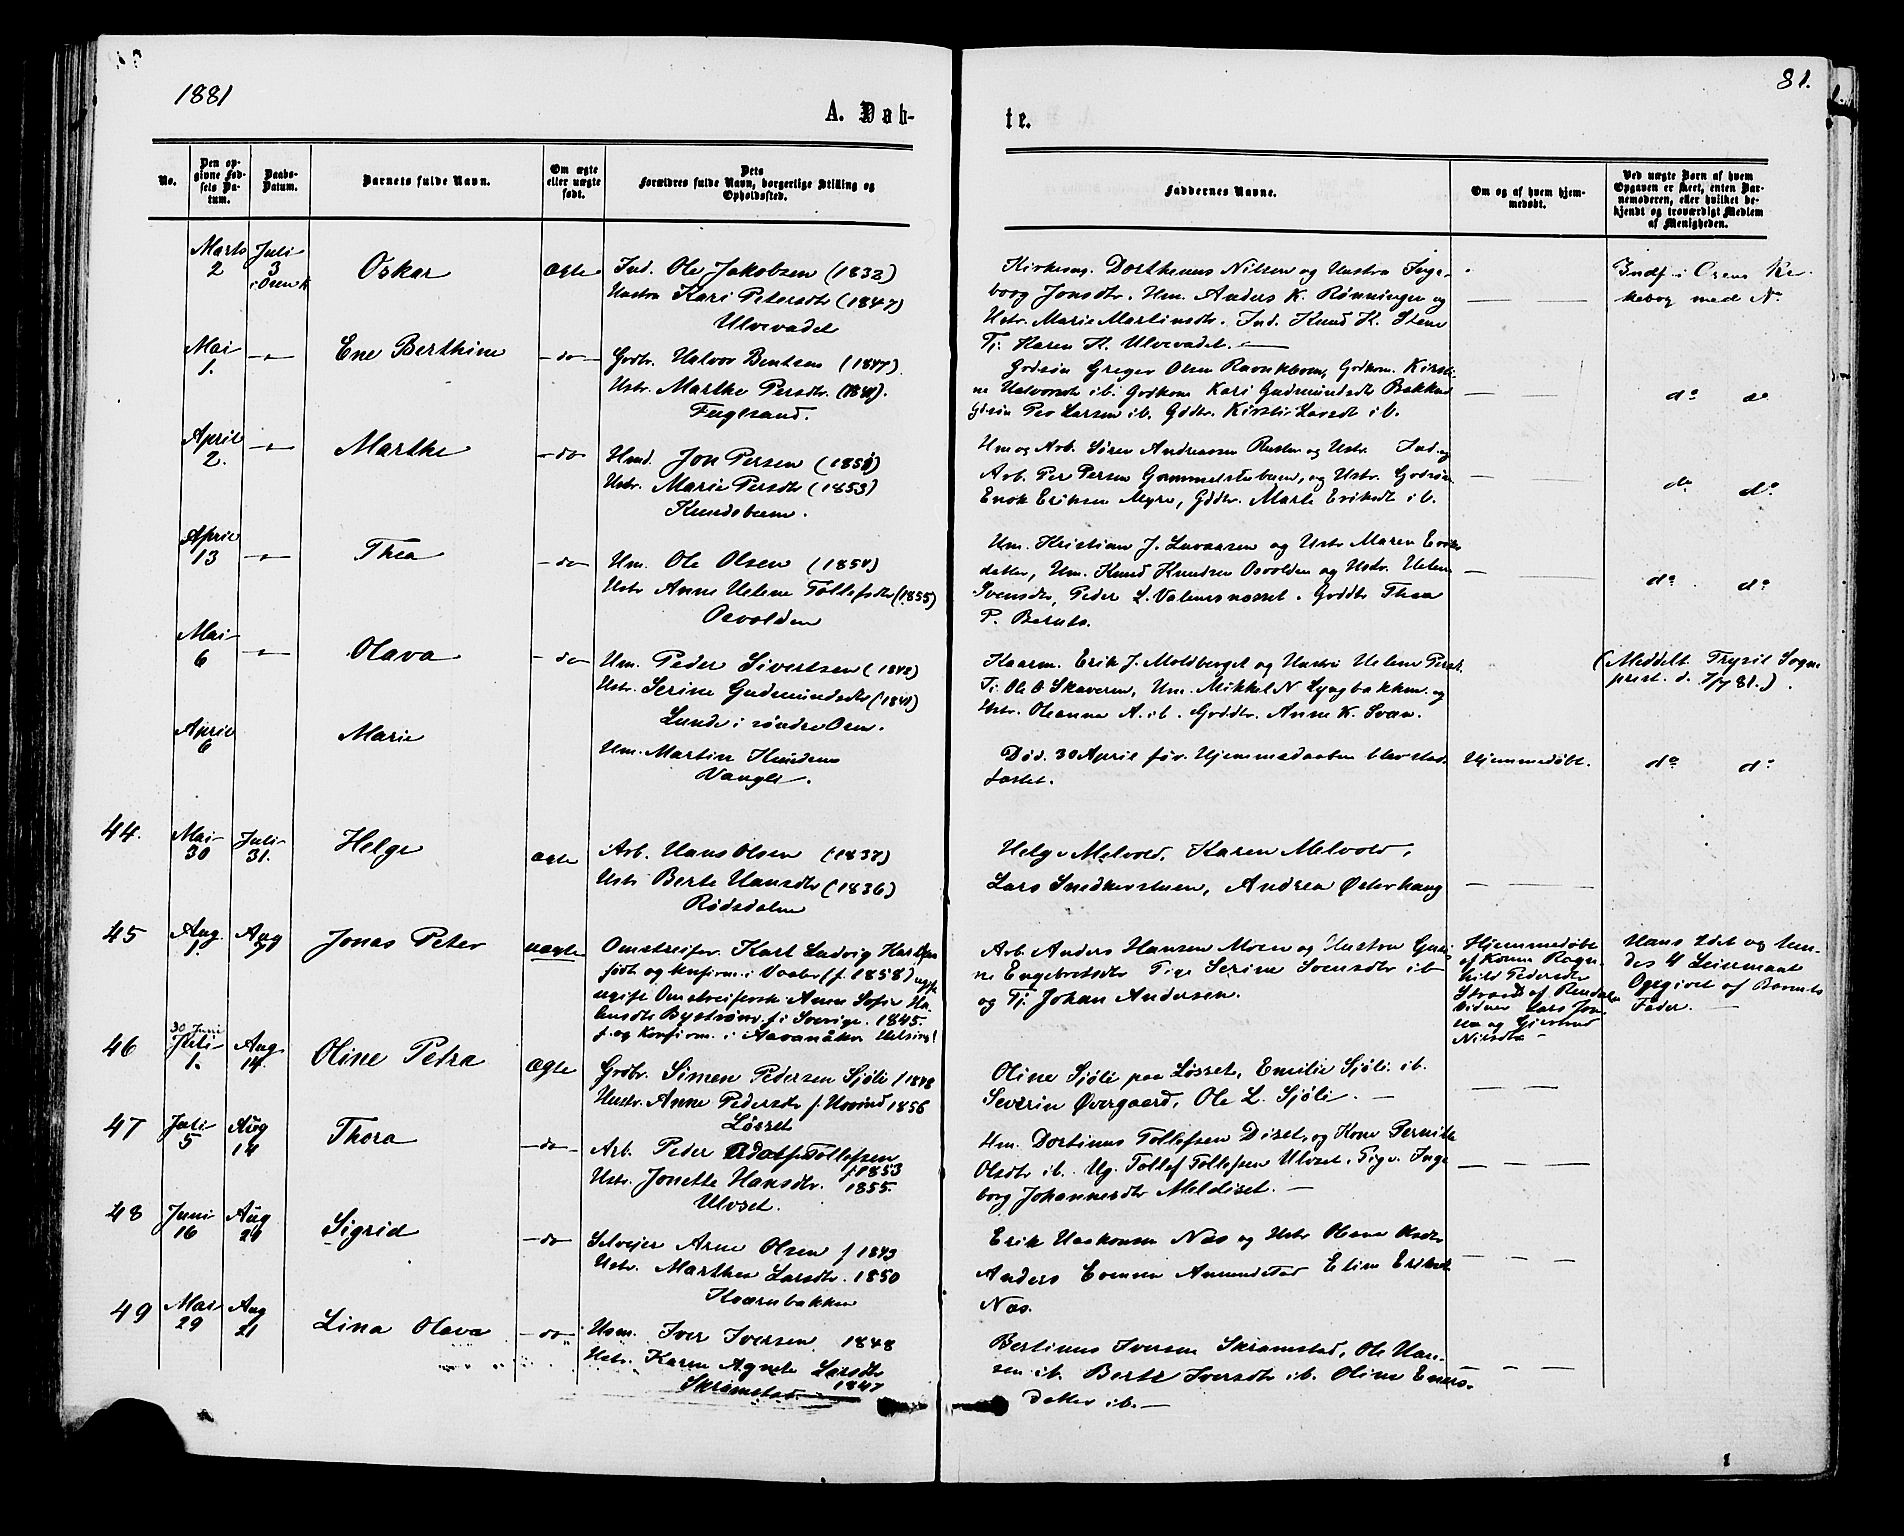 1881
81.
A. Døb-
te.
No.
Den op-
givne Fød-
sels Da-
tum.
Daabs-
Datum.
Barnets fulde Navn.
Om ægte
eller uægte
født.
Dets
Forældres fulde Navn, borgerlige Stilling og
Opholdssted.
Faddernes Navne.
Om og af hvem hjem-
medøbt.
Ved uægte Børn af hvem
Opgaven er skeet, enten Bar-
nemoderen, eller hvilket be-
kjendt og troværdigt Medlem
af Menigheden.
Marts
2
Juli
3
i Osen K
Oskar
ægte
Ind. Ole Jakobsen (1832)
Hustru Kari Petersdtr (1847)
Ulvevadet
Kirkesng. Dortheus Nilsen og Hustru Inge-
borg Jonsdtr. Hm. Anders K. Rønningen og
Hstr. Marie Martinsdtr. Ind. Knud K. Stene
Tj. Karen H. Ulvevadet.
Indf. i Osens Kir-
kebog med No
Mai
1.
Ene Berthine
do
Grdbr. Halvor Bentsen (1847).
Hstr. Marthe Persdtr.
Fuglsand.
Grdsøn Greger Olsen Ravnkboen, Grdkon. Kirsti-
ne Halvorsdtr ib. Grdkone Kari Gudmundsdtr Bakken
Per Larsen ib. Gddtr. Kirsti Larsdt ib.
do do
April
2.
Marthe
do
Hmd. Jon Persen
Hstr. Marie Persdtr (1853)
Knudsbeen.
Hm og Arb. Søren Andreasen og Hstr. Ind. og
Arb. Per Persen Gammelstubeen, og Hstr. Grdsøn
Enok Eriksen Myre, Gddtr. Marte Eriksdt ib.
do do
April
13
Thea
do
Hm. Ole Olsen (1854)
Hstr Anne Helene Tollefsdtr (1855)
Osvolden
Hm. Kristian J. Luvaasen og Hstr Maren Eriks
datter, Hm. Knud Knudsen Osvolden og Hstr. Helene
Svensdtr, Peder L. Valmsnæsset. Grddtr Thea
P. Bernts.
do do
Mai
6
Olava
do
Hm. Peder Sivertsen (1842)
Hstr. Serine Gudmundsdtr (1841)
Lunde i søndre Osen.
Kaarm. Erik J. Moldberget og Hustru Helene Persdt.
Tj. Ole O Skaveren, Hm. Mikkel N Lyngbakken og
Hstr. Oleanna A. ib. Grddtr. Anne K. Svæn.
(Meddelt Trysil Sogne
prest. d. 7/7 81.).
April
6
Marie
Hm. Martin Knudsen
Vangli.
Død. 30 April før Hjemmedaaben blev stad-
fæstet.
Hjemmedøbt.
do do
44.
Mai
30
Juli
31.
Helge
ægte
Arb. Hans Olsen (1837)
Hstr Berte Hansdtr (1836)
Rødsdalen
Helge Melvold, Karen Melvold,
Lars Snedkerstuen, Andrea Østerhaug
45
Aug.
1.
Aug
7
Jonas Peter
uægte
Omstreifer Karl Ludvig Karlsen
født og konfirm. i Vaaler (f. 1858) ugift
ugift Omstreiferske Anne Sofie Jo-
hansdtr Bystrøm f. i Sverige. 1845.
f. og Konfirm. i Helsing!
Arb. Anders Hansen Moen og Hustru
ne Engebretsdtr Pige Serine Svensdtr ib
og Tj. Johan Andersen.
Hjemmedøbt
af Kone Ragn-
hild Pedersdtr
Strand af Rendalen
Vidner Lars Jon-
sen og Gjertrud
Nilsdtr
Hans 2det og hen-
des 4 Leiermaal
Opgivet af Barnets
Fader.
46
30 Juni
Juli
1.
Aug
14.
Oline Petra
ægte
Grdbr. Simen Pedersen Sjøli f 1848
Hustr. Anne Pedersdtr f. Hovind 1856
Løsset
Oline Sjøli paa Løsset, Emilie Sjøli ib.
Severin Øvergaard, Ole L. Sjøli.
47
Juli
5
Aug
14
Thora
do
Arb. Peder Adolf Tollefsen
f. 1853
Hstr. Jonette Hansdtr. 1855.
Ulvset.
Hm. Dortinus Tollefsen Diset, og Kone Pernille
Olsdtr ib. Ug. Tollef Tollefsen Ulvset, Pige Inge
borg Johannesdtr Meldiset.
48
Juni
16
Aug
21
Sigrid
do
Selveier Arne Olsen f 1843
Hstr. Marthea Larsdtr. 1850
Kværnbakken
Erik Haakonsen Næs og Hstr Olava
Anders Evensen Amundstad Eline Eriksdt
Næs.
49
Mai
29
Aug
21
Lina Olava
do
Husm. Iver Iversen 1848
Hstr. Karen Agnete Larsdtr
Skramstad 1847
Bertinus Iversen Skramstad, Ole Han-
sen ib. Berte Iversdtr ib. Oline Eners-
datter ib.